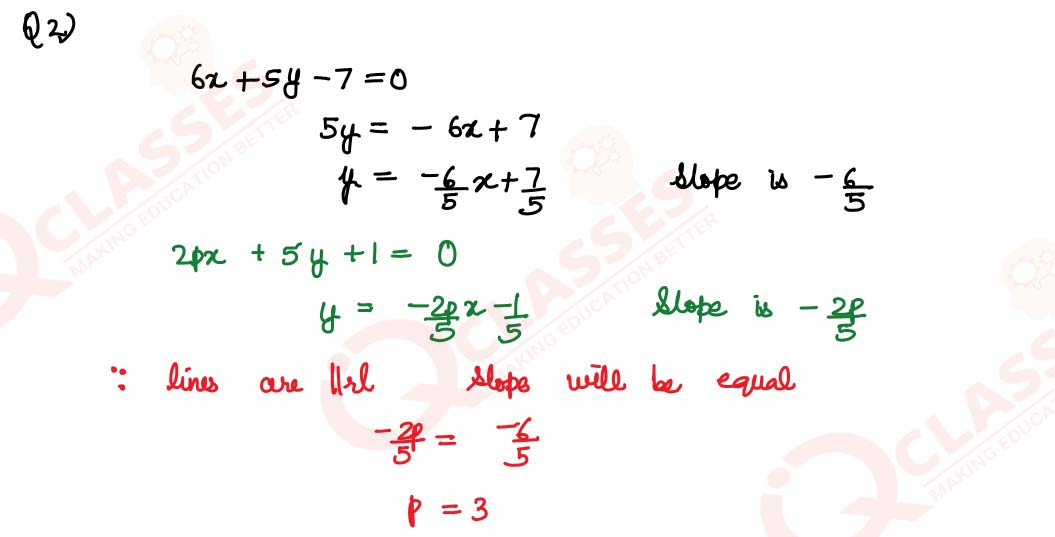 Q 2)
6x + 5y - 7 = 0
5y = - 6x + 7
y = -6/5 x + 7/5 Slope is - 6/5
2px + 5y + 1 = 0
y = -2p/5 x - 1/5 Slope is - 2p/5
∵ lines are ||rl slope will be equal
-2p/5 = -6/5
p = 3
iQ CLASSES
MAKING EDUCATION BETTER
iQ CLASSES
MAKING EDUCATION BETTER
iQ CLASSES
MAKING EDUCA